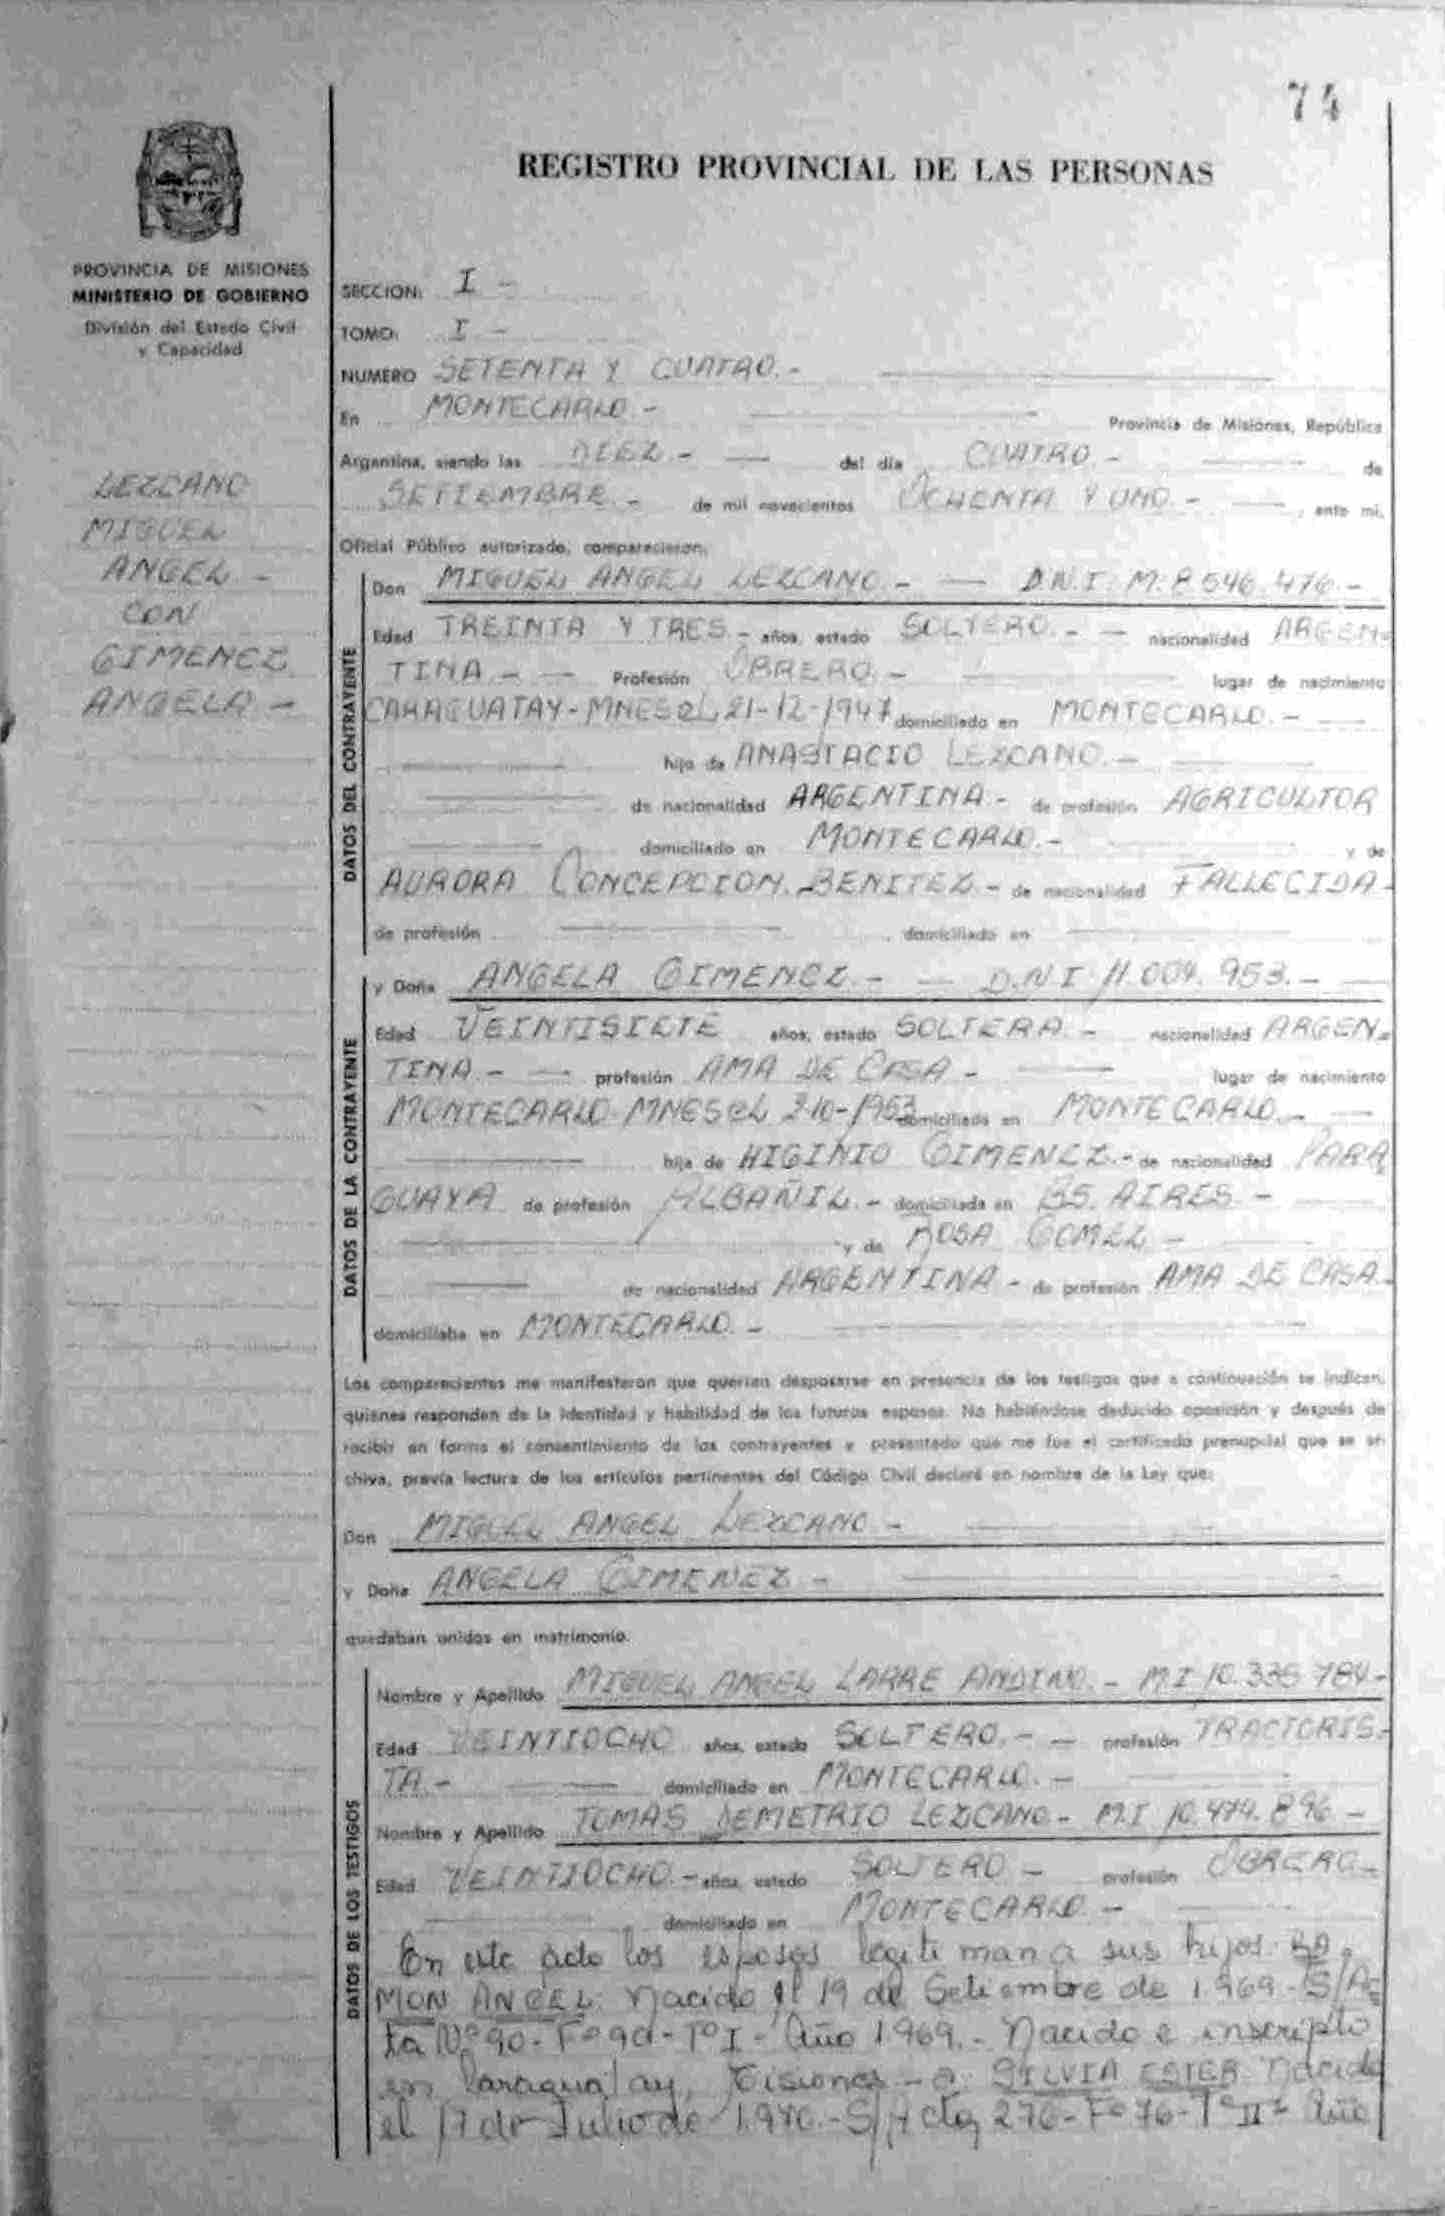 74
REGISTRO PROVINCIAL DE LAS PERSONAS
PROVINCIA DE MISIONES
MINISTERIO DE GOBIERNO
División del Estado Civil
y Capacidad
LEZCANO
MIGUEL
ANGEL -
CON
GIMENEZ
ANGELA -
SECCION: I -
TOMO: I -
NUMERO SETENTA Y CUATRO. -
En MONTECARLO - Provincia de Misiones, República
Argentina, siendo las DIEZ - del día CUATRO - de
SETIEMBRE - de mil novecientos OCHENTA Y UNO. - , ante mí,
Oficial Público autorizado, comparecieron:
DATOS DEL CONTRAYENTE
Don MIGUEL ANGEL LEZCANO. - D.N.I. M. 8.546.476. -
Edad TREINTA Y TRES - años, estado SOLTERO. - nacionalidad ARGEN-
TINA. - Profesión OBRERO. - lugar de nacimiento
CARAGUATAY - MNES el 21-12-1947 domiciliado en MONTECARLO. -
hijo de ANASTACIO LEZCANO. -
de nacionalidad ARGENTINA - de profesión AGRICULTOR
domiciliado en MONTECARLO. - y de
AURORA CONCEPCION BENITEZ - de nacionalidad FALLECIDA -
de profesión domiciliado en
DATOS DE LA CONTRAYENTE
y Doña ANGELA GIMENEZ - D.N.I 11.004.953. -
Edad VEINTISIETE años, estado SOLTERA. - nacionalidad ARGEN-
TINA. - profesión AMA DE CASA - lugar de nacimiento
MONTECARLO MNES el 2-10-1953 domiciliada en MONTECARLO. -
hija de HIGINIO GIMENEZ. - de nacionalidad PARA
GUAYA de profesión ALBAÑIL. - domiciliado en BS. AIRES -
y de ROSA GOMEZ -
de nacionalidad ARGENTINA - de profesión AMA DE CASA -
domiciliaba en MONTECARLO. -
Los comparecientes me manifestaron que querían desposarse en presencia de los testigos que a continuación se indican,
quienes responden de la identidad y habilidad de los futuros esposos. No habiéndose deducido oposición y después de
recibir en forma el consentimiento de los contrayentes y presentado que me fue el certificado prenupcial que se ar-
chiva, previa lectura de los artículos pertinentes del Código Civil declaré en nombre de la Ley que:
Don MIGUEL ANGEL LEZCANO -
y Doña ANGELA GIMENEZ -
quedaban unidos en matrimonio.
DATOS DE LOS TESTIGOS
Nombre y Apellido MIGUEL ANGEL LARRE ANDINO. - M.I 10.336 784 -
Edad VEINTIOCHO años, estado SOLTERO. - profesión TRACTORIS-
TA - domiciliado en MONTECARLO. -
Nombre y Apellido TOMAS DEMETRIO LEZCANO - M.I 10.474.896 -
Edad VEINTIOCHO. - años, estado SOLTERO - profesión OBRERO -
domiciliado en MONTECARLO -
En este acto los esposos legitiman a sus hijos: RA-
MON ANGEL: Nacido el 19 de Setiembre de 1.969 - S/Ac-
ta Nº 90 - Fº 90 - Tº I - Año 1969. - Nacido e inscripto
en Caraguatay, Misiones - a: SILVIA ESTER Nacida
el 17 de Julio de - S/Acta 276 - Fº 76 - Tº II - Año